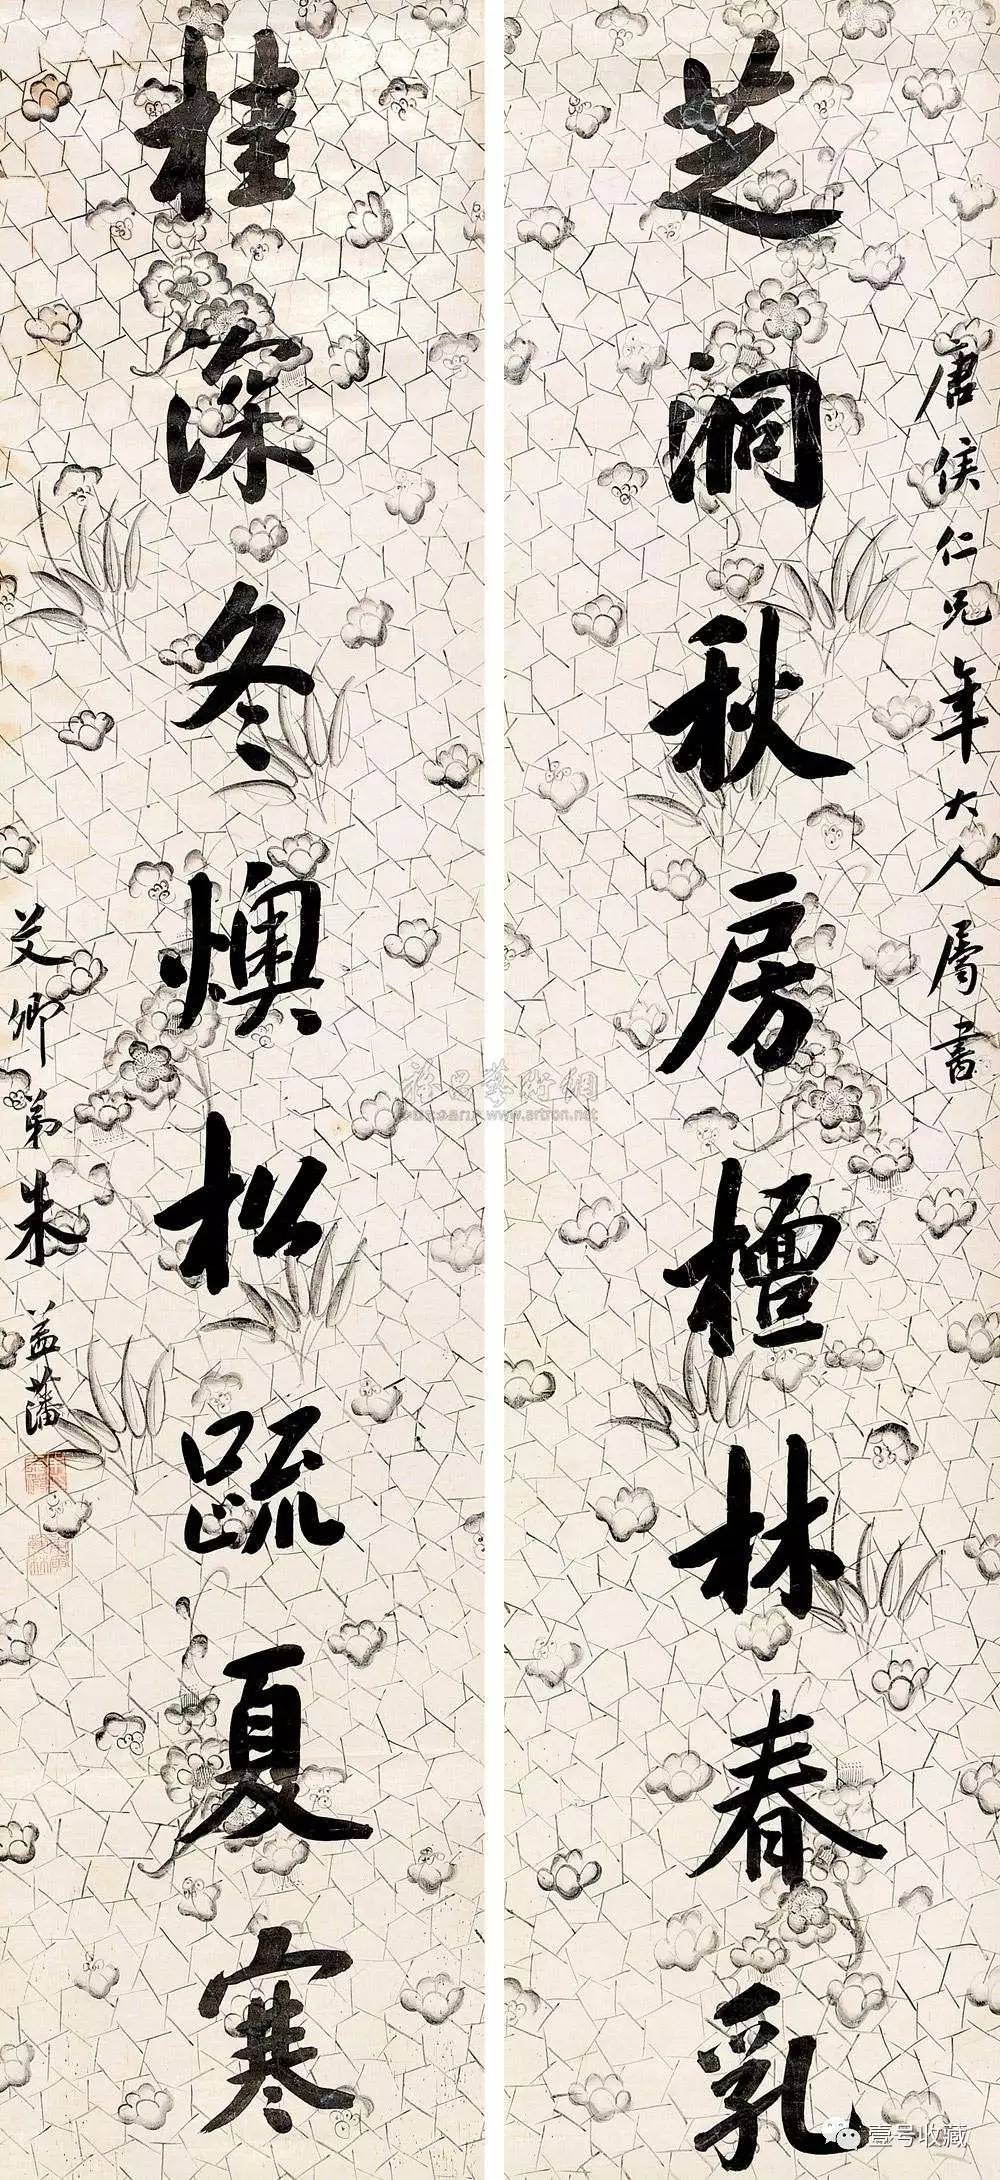 芝洞秋房檀林春乳
唐侯仁兄年大人属書
桂深冬燠松疏夏寒
艾卿弟朱益藩
www.artron.net
壹号收藏